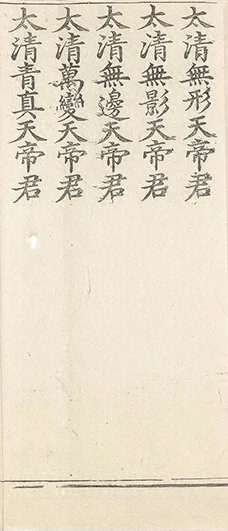 太清無形天帝君
太清無影天帝君
太清無邊天帝君
太清萬變天帝君
太清青真天帝君